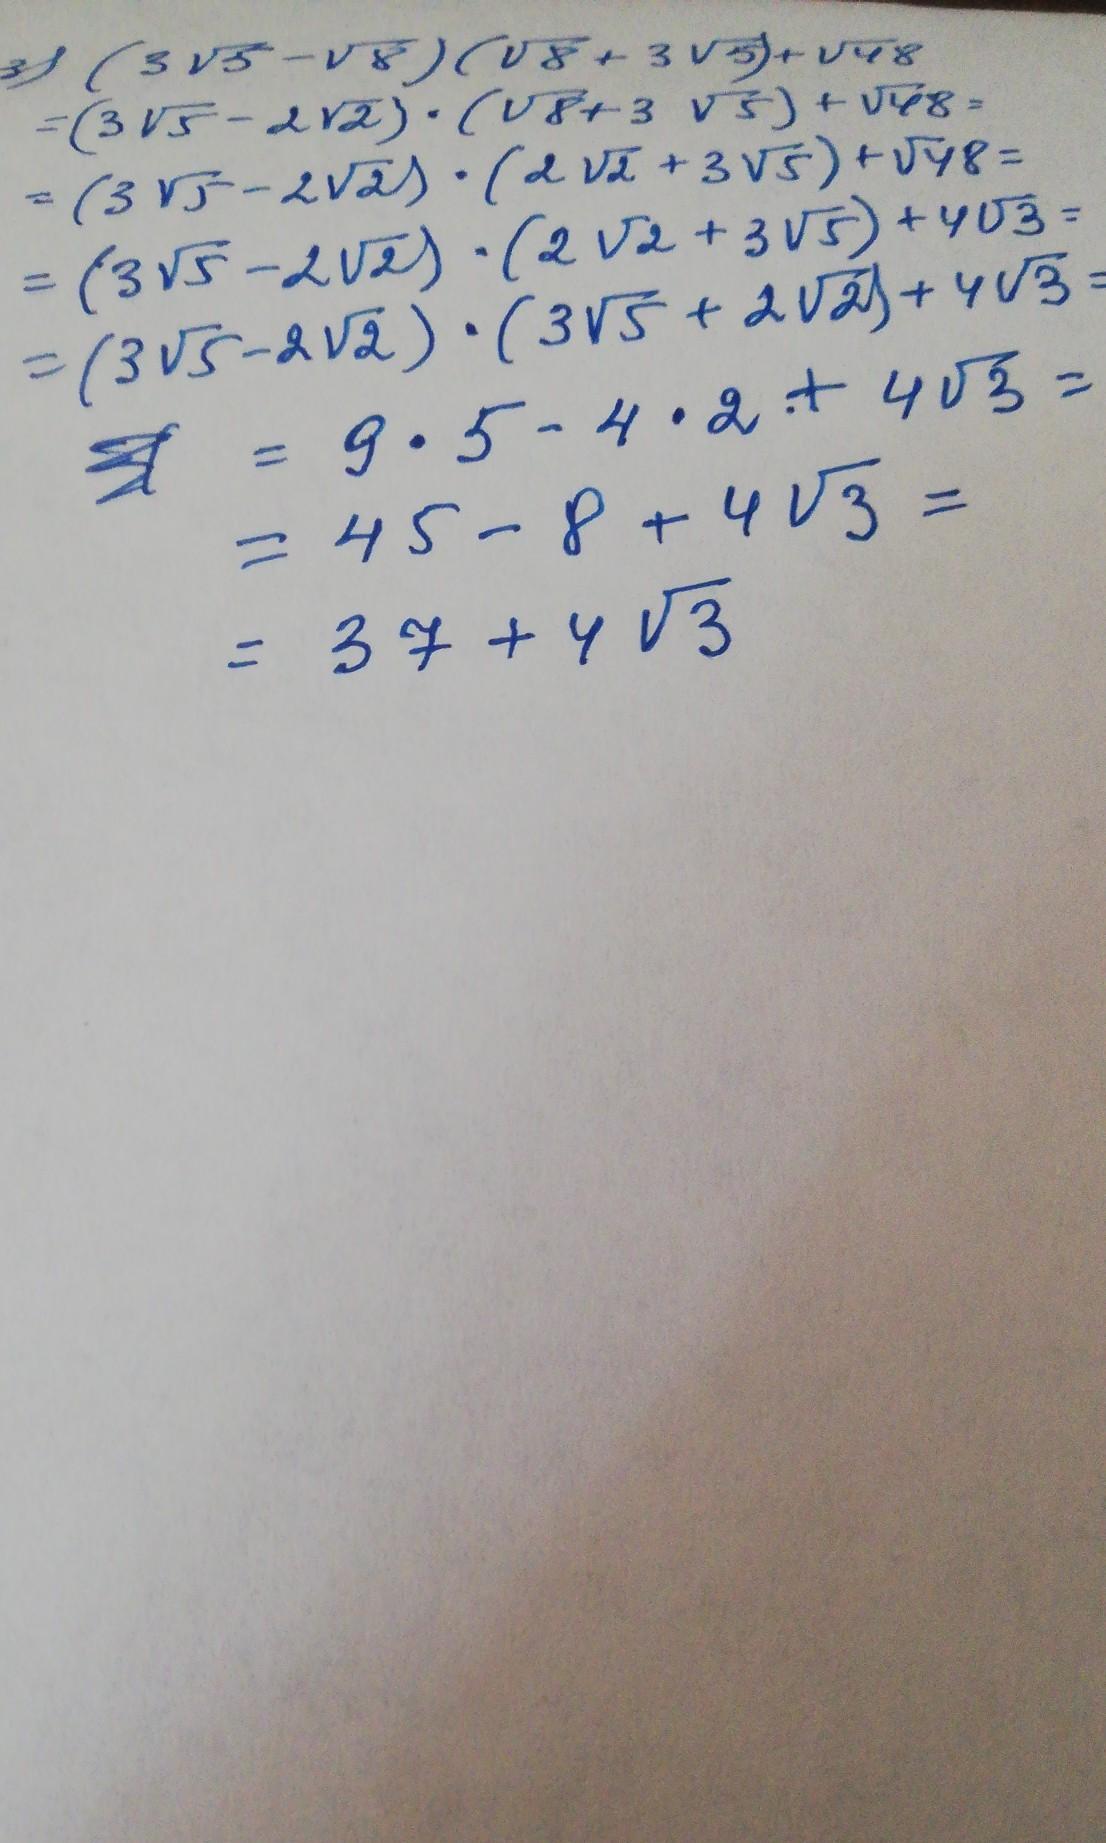 3) (3√5 - √8)(√8 + 3√5) + √48
= (3√5 - 2√2) · (√8 + 3 √5) + √48 =
= (3√5 - 2√2) · (2√2 + 3√5) + √48 =
= (3√5 - 2√2) · (2√2 + 3√5) + 4√3 =
= (3√5 - 2√2) · (3√5 + 2√2) + 4√3 =
= 9 · 5 - 4 · 2 + 4√3 =
= 45 - 8 + 4√3 =
= 37 + 4√3